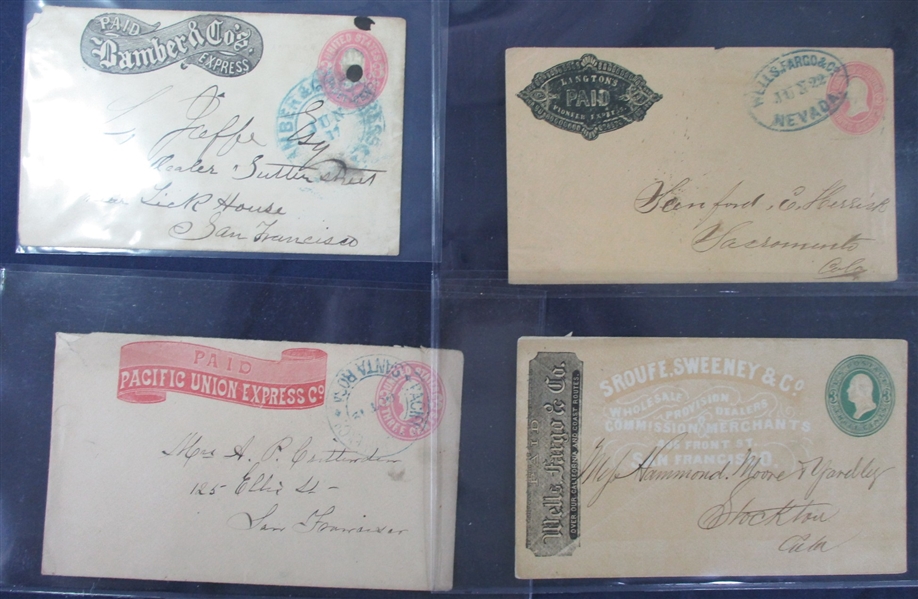 PAID
Bamber & Co's
EXPRESS
UNITED STATES
JUN
Jaffe Esq
Dealer Sutter street
Lick House
San Francisco
LANGTON'S
PAID
PIONEER EXPRESS
WELLS, FARGO & CO
JUN 22
NEVADA
Sanford, E, Herrick
Sacramento
Cala
PAID
PACIFIC UNION EXPRESS Co
SANTA ROSA
Mrs A. P. Crittenden
125 Ellis St -
San Francisco
PAID
Wells, Fargo & Co.
OVER OUR CALIFORNIA AND COAST ROUTES.
SROUFE, SWEENEY & Co
WHOLESALE PROVISION DEALERS
& COMMISSION MERCHANTS
FRONT ST.
SAN FRANCISCO.
Mess Hammond, Moore & Yardley
Stockton
Cala